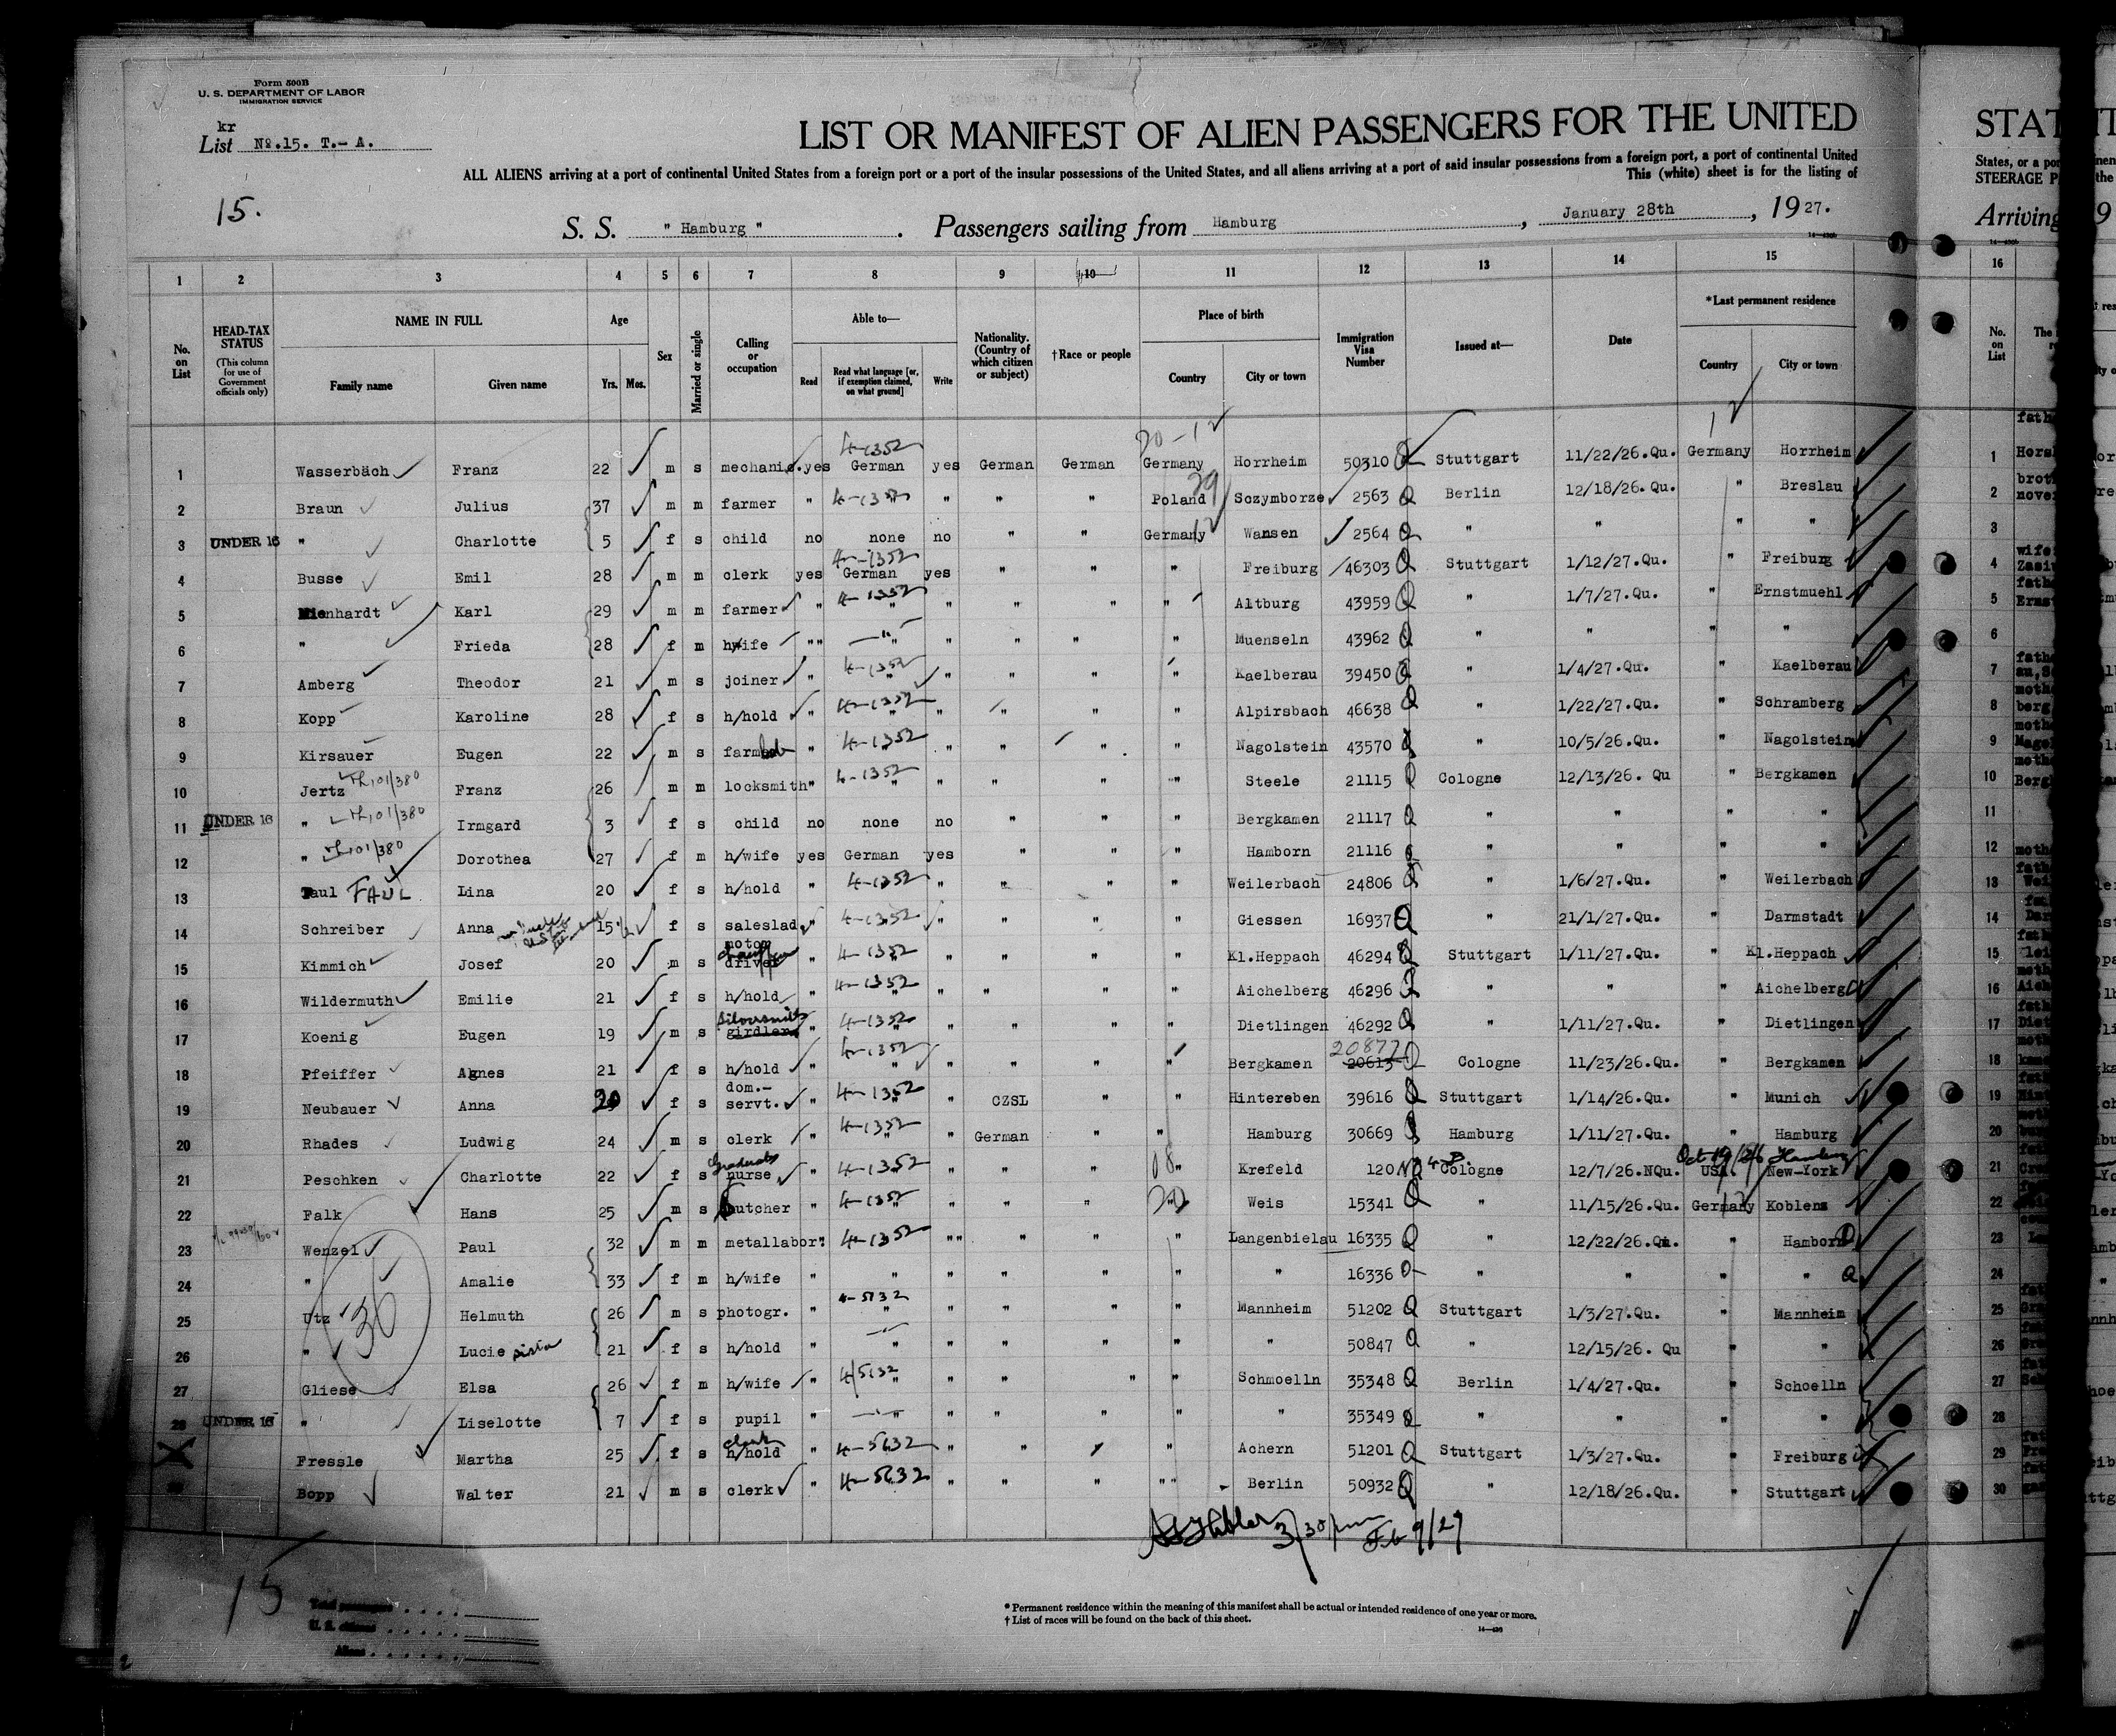 Form 500B
U. S. DEPARTMENT OF LABOR
IMMIGRATION SERVICE
kr
List No.15. T.- A.
15.
LIST OR MANIFEST OF ALIEN PASSENGERS FOR THE UNITED
ALL ALIENS arriving at a port of continental United States from a foreign port or a port of the insular possessions of the United States, and all aliens arriving at a port of said insular possessions from a foreign port, a port of continental United
This (white) sheet is for the listing of
S. S. " Hamburg ". Passengers sailing from Hamburg, January 28th, 1927.
STAT
States, or a
STEERAGE
Arriving
1 2 3 4 5 6 7 8 9 10 11 12 13 14 15 16
No. on List
HEAD-TAX STATUS (This column for use of Government officials only)
NAME IN FULL Family name Given name
Age Yrs. Mos.
Sex
Married or single
Calling or occupation
Able to— Read Read what language [or, if exemption claimed, on what ground] Write
Nationality. (Country of which citizen or subject)
†Race or people
Place of birth Country City or town
Immigration Visa Number
Issued at—
Date
*Last permanent residence Country City or town
No. on List
1 Wasserbäch Franz 22 m s mechanic. yes 4-1352 German yes German German Germany Horrheim 50310 Stuttgart 11/22/26.Qu. Germany Horrheim 1
2 Braun Julius 37 m m farmer " 4-1352 " " " Poland Sczymborze 2563 Q Berlin 12/18/26.Qu. " Breslau 2
3 UNDER 16 " Charlotte 5 f s child no none no " " Germany Wansen 2564 Q " " " " 3
4 Busse Emil 28 m m clerk yes 4-1352 German yes " " " Freiburg 46303 Q Stuttgart 1/12/27.Qu. " Freiburg 4
5 nhardt Karl 29 m m farmer " 4-1352 " " " " " Altburg 43959 Q " 1/7/27.Qu. " Ernstmuehl 5
6 " Frieda 28 f m h/wife " " " " " " " Muenseln 43962 Q " " " " 6
7 Amberg Theodor 21 m s joiner " 4-1352 " " " " " Kaelberau 39450 Q " 1/4/27.Qu. " Kaelberau 7
8 Kopp Karoline 28 f s h/hold " 4-1352 " " " " " Alpirsbach 46638 Q " 1/22/27.Qu. " Schramberg 8
9 Kirsauer Eugen 22 m s farm lab " 4-1352 " " " " " Nagolstein 43570 " 10/5/26.Qu. " Nagolstein 9
10 Jertz 101/380 Franz 26 m m locksmith " 4-1352 " " " " " Steele 21115 Q Cologne 12/13/26. Qu " Bergkamen 10
11 UNDER 16 " 101/380 Irmgard 3 f s child no none no " " " Bergkamen 21117 Q " " " " 11
12 " 101/380 Dorothea 27 f m h/wife yes German yes " " " Hamborn 21116 " " " " 12
13 aul FAUL Lina 20 f s h/hold " 4-1352 " " " " Weilerbach 24806 Q " 1/6/27.Qu. " Weilerbach 13
14 Schreiber Anna 15 f s saleslad. " 4-1352 " " " " Giessen 16937 Q " 21/1/27.Qu. " Darmstadt 14
15 Kimmich Josef 20 m s motor driver chauffeur " 4-1352 " " " " " Kl.Heppach 46294 Q Stuttgart 1/11/27.Qu. " Kl.Heppach 15
16 Wildermuth Emilie 21 f s h/hold " 4-1352 " " " " " Aichelberg 46296 Q " " " Aichelberg 16
17 Koenig Eugen 19 m s girdler Silversmith " 4-1352 " " " " " Dietlingen 46292 Q " 1/11/27.Qu. " Dietlingen 17
18 Pfeiffer Agnes 21 f s h/hold " 4-1352 " " " " " Bergkamen 20615 20877 Q Cologne 11/23/26.Qu. " Bergkamen 18
19 Neubauer Anna 20 f s dom.- servt. " 4-1352 " " CZSL " " Hintereben 39616 Q Stuttgart 1/14/26.Qu. " Munich 19
20 Rhades Ludwig 24 m s clerk " 4-1352 " " German " " Hamburg 30669 Hamburg 1/11/27.Qu. " Hamburg 20
21 Peschken Charlotte 22 f s Graduate nurse " 4-1352 " " " " " Krefeld 120 NQ Cologne 12/7/26.NQu. USA. New-York Oct 19/26 Hamburg 21
22 Falk Hans 25 m s butcher " 4-1352 " " " " " Weis 15341 Q " 11/15/26.Qu. Germany Koblenz 22
23 Wenzel Paul 32 m m metallabor. " 4-1352 " " " " Langenbielau 16335 Q " 12/22/26.Qu. " Hamborn 23
24 " Amalie 33 f m h/wife " " " " " " " 16336 Q " " " " 24
25 Utz Helmuth 26 m s photogr. " 4-5132 " " " " " Mannheim 51202 Q Stuttgart 1/3/27.Qu. " Mannheim 25
26 " Lucie sister 21 f s h/hold " " " " " " " 50847 Q " 12/15/26. Qu " " 26
30
27 Gliese Elsa 26 f m h/wife " 4/5132 " " " " " Schmoelln 35348 Q Berlin 1/4/27.Qu. " Schoelln 27
28 UNDER 16 " Liselotte 7 f s pupil " " " " " " " 35349 " " " " 28
Fressle Martha 25 f s clerk h/hold " 4-5632 " " " " Achern 51201 Q Stuttgart 1/3/27.Qu. " Freiburg 29
Bopp Walter 21 m s clerk " 4-5632 " " " " " Berlin 50932 Q " 12/18/26.Qu. " Stuttgart 30
3/30 pm Feb 9/27
15
Total passengers
U. S. citizens
Aliens
* Permanent residence within the meaning of this manifest shall be actual or intended residence of one year or more.
† List of races will be found on the back of this sheet.